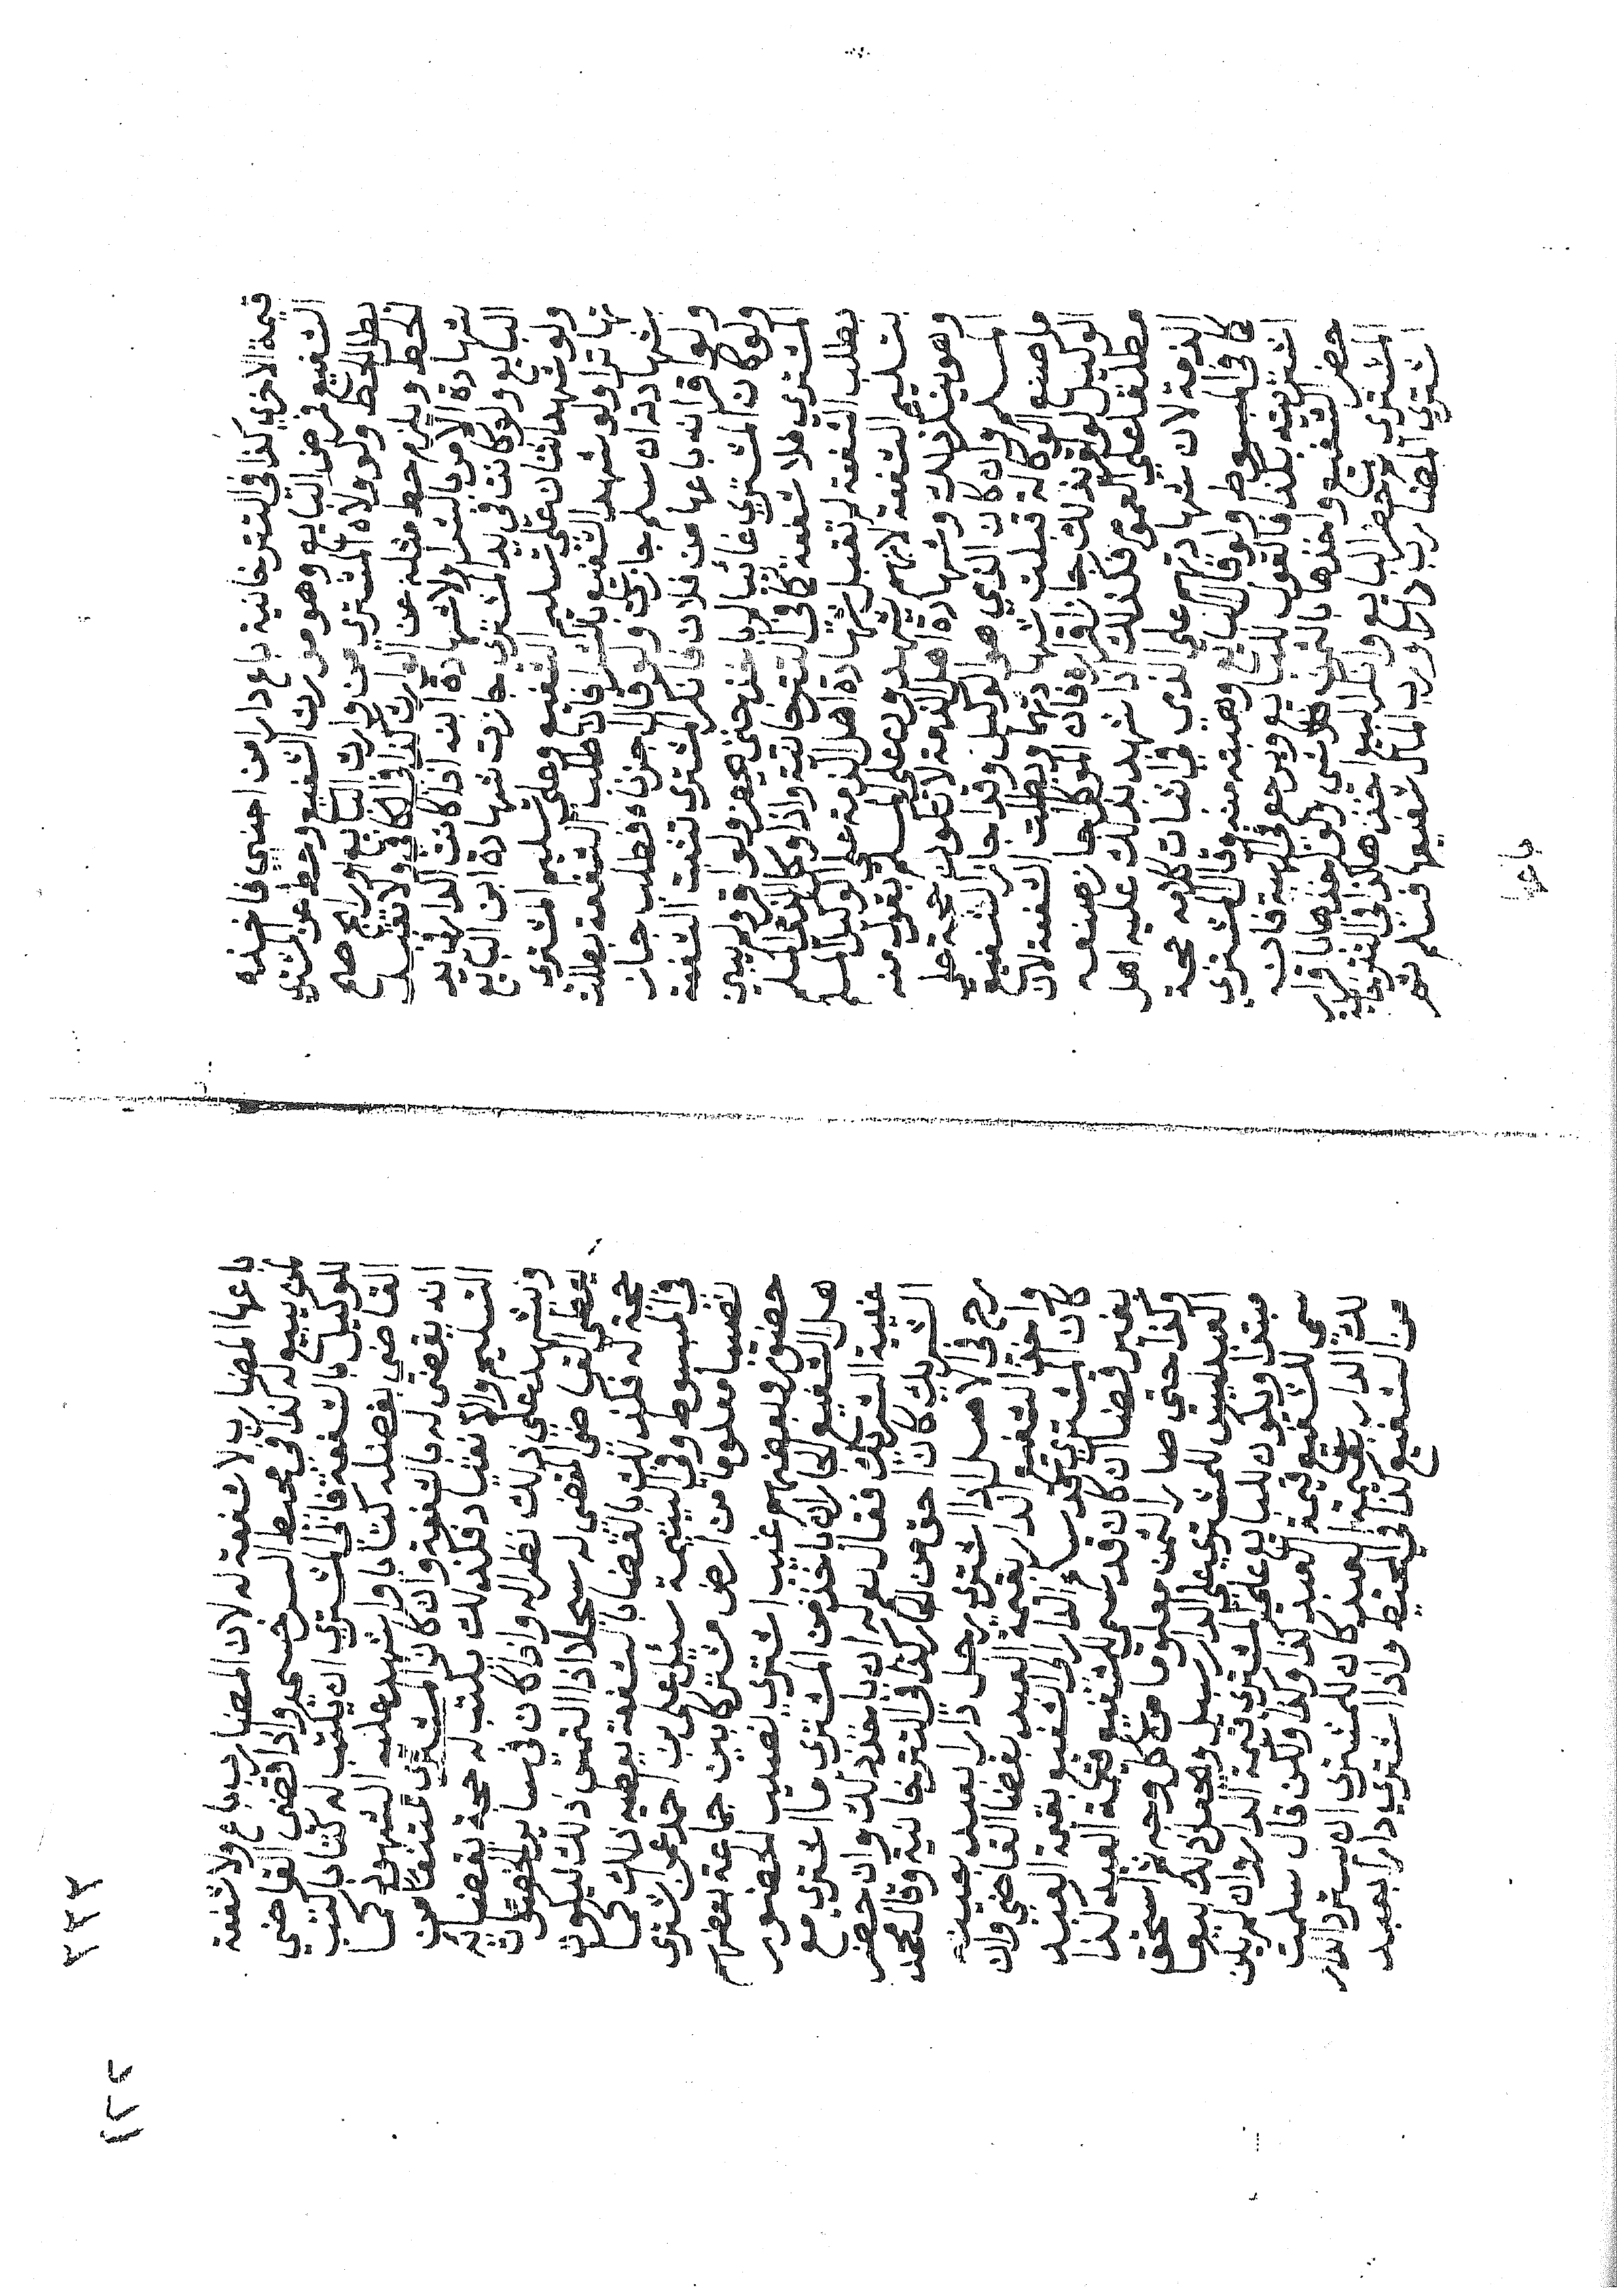 قيمة الاخري كذا في التترخانية باع دارا من اجنبي فاخذه
الشفيع ثم مرض البايع وهو مورث الشفيع وحط عن المشتري
بطل الحط ولو ولاه المشتري من وارث البايع او رابح صح
الحط ويلزم حط مثله عن الوارث كذا في الكافي ولا تقبل
شهادة الامر بالشرا ولا شهادة ابنه اذا كانت الدار في يد
البايع ولو كانت في يد المشتري جازت شهادة ابن البايع
ولو شهد اثنان علي تسليم الشفيع وعلي تسليم المشتري
تهاترا ولو شهد الشفيع بالشرا فان طلب الشفعة بطلت
شهادته ان سلم جازت ولو قال اجزناه فطلب جاز
ولو اقر انه باعها من فلان فانكر المشتري تثبت الشفعة
ولو كان المشتري غائبا لم ياخذ حتي يحضر ولو اقر ولم يبين
المشتري فلا شفعة كما في التترخانية واذا وكل الذمي المسلم
بطلب الشفعة لم تقبل شهادة اهل الذمة علي الوكيل المسلم
بتسليم الشفعة لانهم يشهدون علي المسلم بقول منه
وهو ينكر ذلك وشهادة اهل الذمة لا تكون حجة علي
المسلم وان كان الذي هو الوكيل وقد اجاز الشفيع
ما صنع الوكالة قبلت شهادتهما وبطلت الشفعة لان
الوكيل لو اقر بذلك جاز اقراره فان الموكل اجاز صنعه
مطلقا علي العموم فكذلك اذا شهد بذلك عليه اهل
الذمة لان شهادتهم علي الذمي في اثبات كلامه حجة
كما في المبسوط ولو قال البايع وهبته منه وقال المشتري
اشتريته بكذا فالقول للبايع ويرجع في الهبة فان
حضر الشفيع واخذها بالثمن فلا شي ولو اخذها باقرار
المشتري ثم حضر البايع وانكر البيع اخذها كذا في التترخانية
اشتري المضارب دارا ورب المال شفيعها فسلم ثم
باعها
باعها المضارب لا شفعة له لان المضارب باع ولا شفعة
لمن بيع له كذا في محيط السرخسي واذا قضي القاضي
للوكيل بالشفعة فابي المشتري ان يكتب له كتابا كتب
القاضي بقضائه كتابا واشهد عليه الشهود كما
انه يقضي له بالشفعة وان كان المشتري ممتنعا من
التسليم والانقياد فكذلك يكتب له حجة بقضائه
ويشهد علي ذلك نظرا له واذا كان في ساير الخصومات
يعطي القاضي المقضي له سجلا اذا التمس ذلك ليكون
حجة له فكذلك بالقضا بالشفعة يعطيه ذلك كما
في المبسوط وفي اليتيمة سئل علي بن احمد عن اشتري
نصيبا معلوما من ارض مشتركا بين جماعة بعضهم
حضور وبعضهم غيب اشتري نصيب الحضور
هل للشفيع الجار ان ياخذ من المشتري ما اشتري مع
غيبة الشريك فقال نعم له ان ياخذ ذلك وان حضر
الشريك كان احق من الجار كذا في التترخانية وقال محمد
رح في الاصل اذا اشتري رجل دارا بعبد بعينه
واخذ الشفيع الدار بقيمة العبد بقضا القاضي وان
كان المشتري قد سلم الدار الي الشفيع بقيمة العبد
بغير قضا ان كان قد سمي للشفيع قيمة العبد كذا
وكذا حتي صار الثمن معلوما من كل وجه ثم استحق
العبد ليس للمشتري علي الدار سبيل ويجعل ذلك بيعا
مبتدا ويكون للبايع علي المشتري قيمة الدار وان لم يكن
سمي للشفيع قيمة العبد كذا وكذا ولكن قال سلمت
لك الدار بقيمة العبد كان للمشتري ان يسترد الدار
من الشفيع كذا في المحيط واذا اشتري دارا بعبد